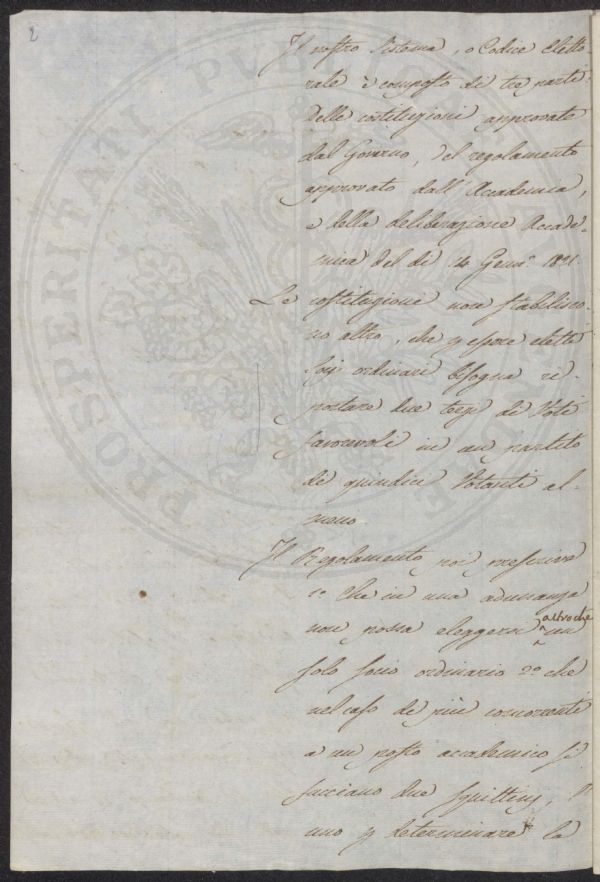 2
Il nostro Sistema, o Codice Eletto-
rale è composto di tre parti
delle costituzioni approvate
dal Governo, del regolamento
approvato dall'Accademia,
e della deliberazione Accade-
mica del dì 4 Genn.o 1821.
Le costituzioni non stabilisco-
no altro, che p essere eletti
Socj ordinari bisogna ri-
portare due terzi di Voti
favorevoli in un partito
di quindici Votanti al-
meno
Il Regolamento poi prescrive
1.o che in una adunanza
non possa eleggersi altro che un
solo socio ordinario 2.o che
nel caso di più concorrenti
a un posto accademico si
facciano due squittinj, l'
uno p determinare la
PROSPERITATI PUBLICAE AUGENDAE